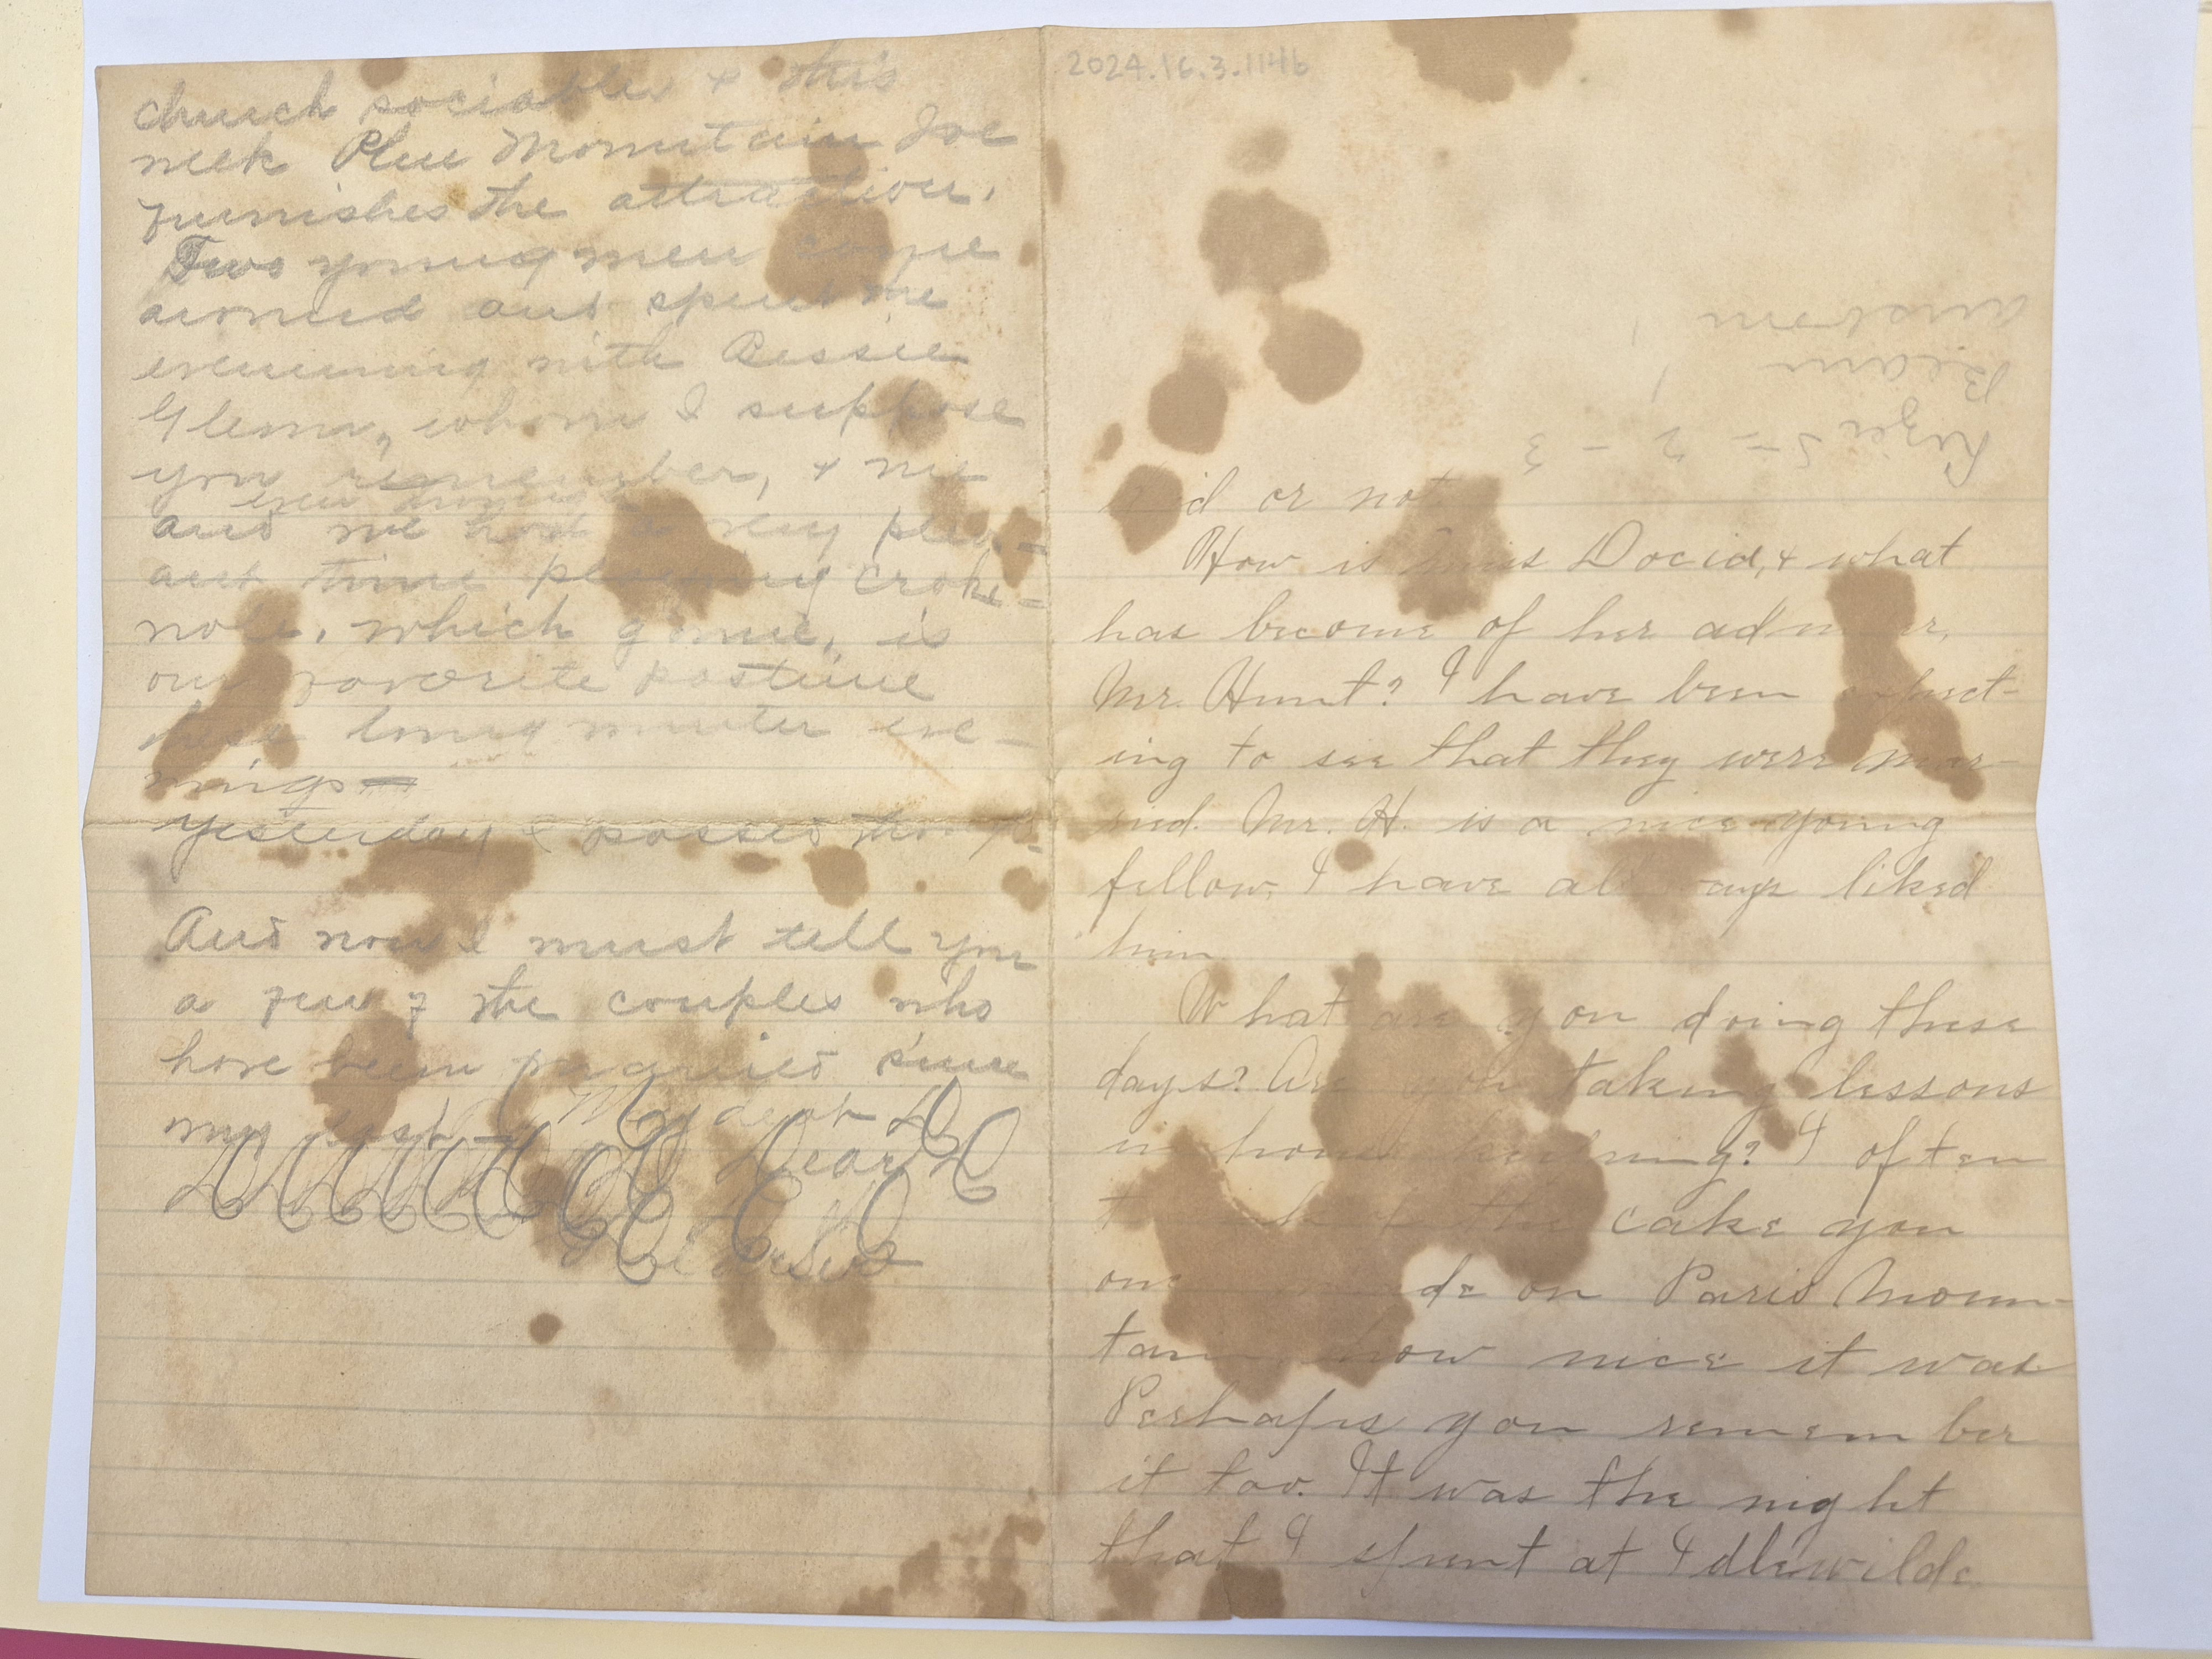 church sociables & this
week Blue Mountain Joe
furnishes the attraction.
Two young men came
around and spent the
evenning with Bessie
Glenn, whom I suppose
you remember, & me
even
and we had a very pleas-
ant time playing croki-
nole, which game, is
our favorite pastime
these long winter eve-
nings
yesterday I passed the
And now I must tell you
a few of the couples who
have been married since
my last
My dear D
Dear D
2024.16.3.114b
Lizzie 5 - 2 - 3
Beam
or not.
How is Miss Docia, & what
has become of her admirer,
Mr. Hunt? I have been expect-
ing to see that they were mar-
ried. Mr. H. is a nice young
fellow, I have always liked
him
What are you doing these
days? Are you taking lessons
in house keeping? I often
the cake you
once made on Paris Moun-
tain, how nice it was
Perhaps you remember
it too. It was the night
that I spent at Idlewilde